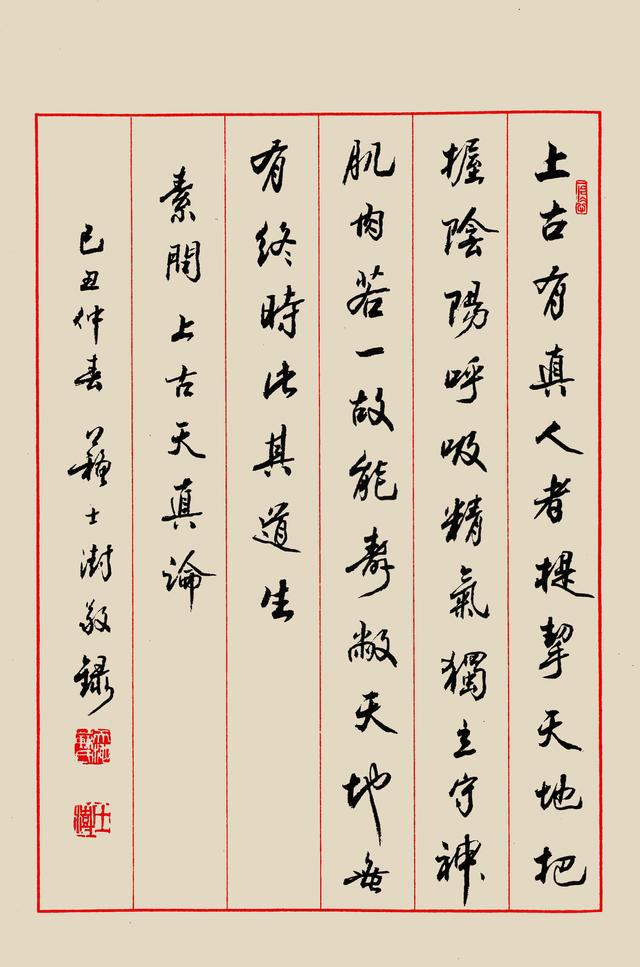 上古有真人者提挈天地把
握陰陽呼吸精氣獨立守神
肌肉若一故能壽敝天地無
有終時此其道生
素問上古天真論
己丑仲春蘇士澍敬錄